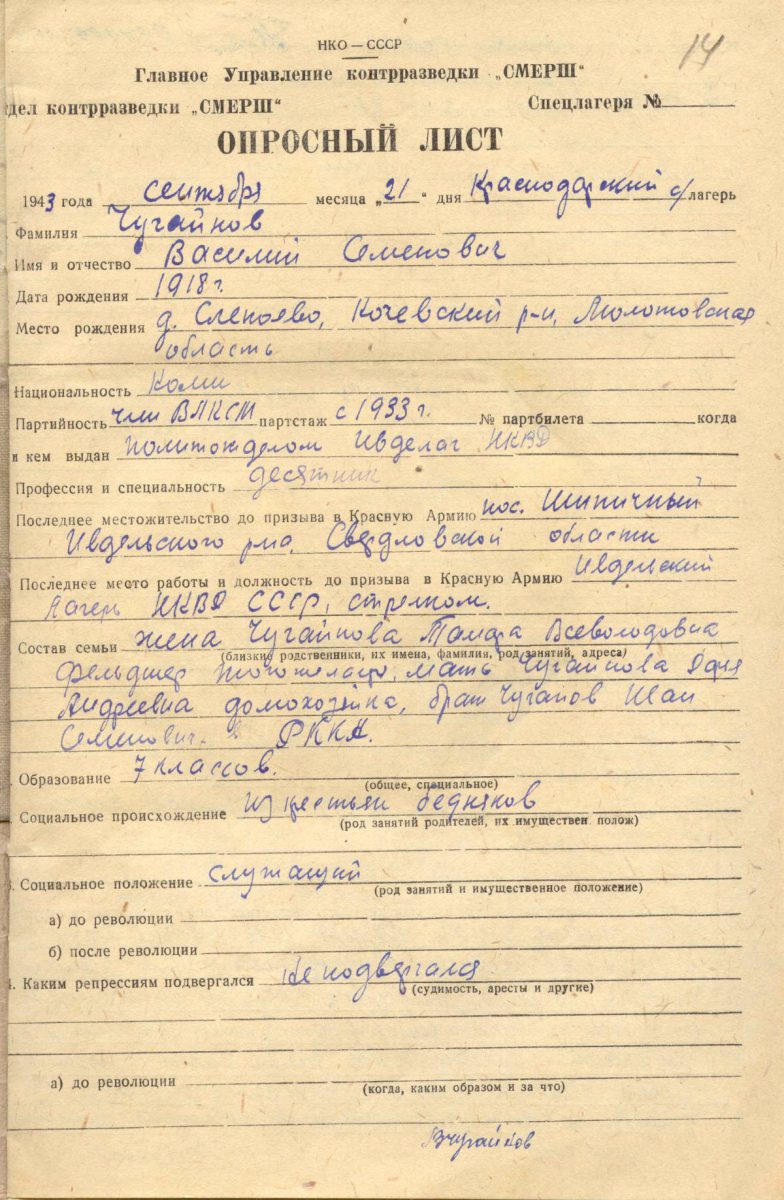 14
НКО — СССР
Главное Управление контрразведки „СМЕРШ“
дел контрразведки „СМЕРШ“ Спецлагеря №
ОПРОСНЫЙ ЛИСТ
1943 года сентября месяца „21“ дня Краснодарский с/лагерь
Фамилия Чугайнов
Имя и отчество Василий Семенович
Дата рождения 1918 г.
Место рождения д. Слепоево, Кочевский р-н, Молотовская
область
Национальность Коми
Партийность член ВЛКСМ партстаж с 1933 г. № партбилета когда
и кем выдан Политотделом Ивделаг НКВД
Профессия и специальность десятник
Последнее местожительство до призыва в Красную Армию пос. Шипичный
Ивдельского р-на, Свердловской области
Последнее место работы и должность до призыва в Красную Армию Ивдельский
лагерь НКВД СССР, стрелком.
Состав семьи жена Чугайнова Тамара Всеволодовна
(близкие родственники, их имена, фамилия, род занятий, адреса)
фельдшер, мать Чугайнова
Андреевна домохозяйка, брат Чугаинов Иван
Семенович. в РККА.
Образование 7 классов.
(общее, специальное)
Социальное происхождение из крестьян бедняков
(род занятий родителей, их имуществен. полож)
3. Социальное положение служащий
(род занятий и имущественное положение)
а) до революции
б) после революции
4. Каким репрессиям подвергался не подвергался
(судимость, аресты и другие)
а) до революции
(когда, каким образом и за что)
Вчугайнов